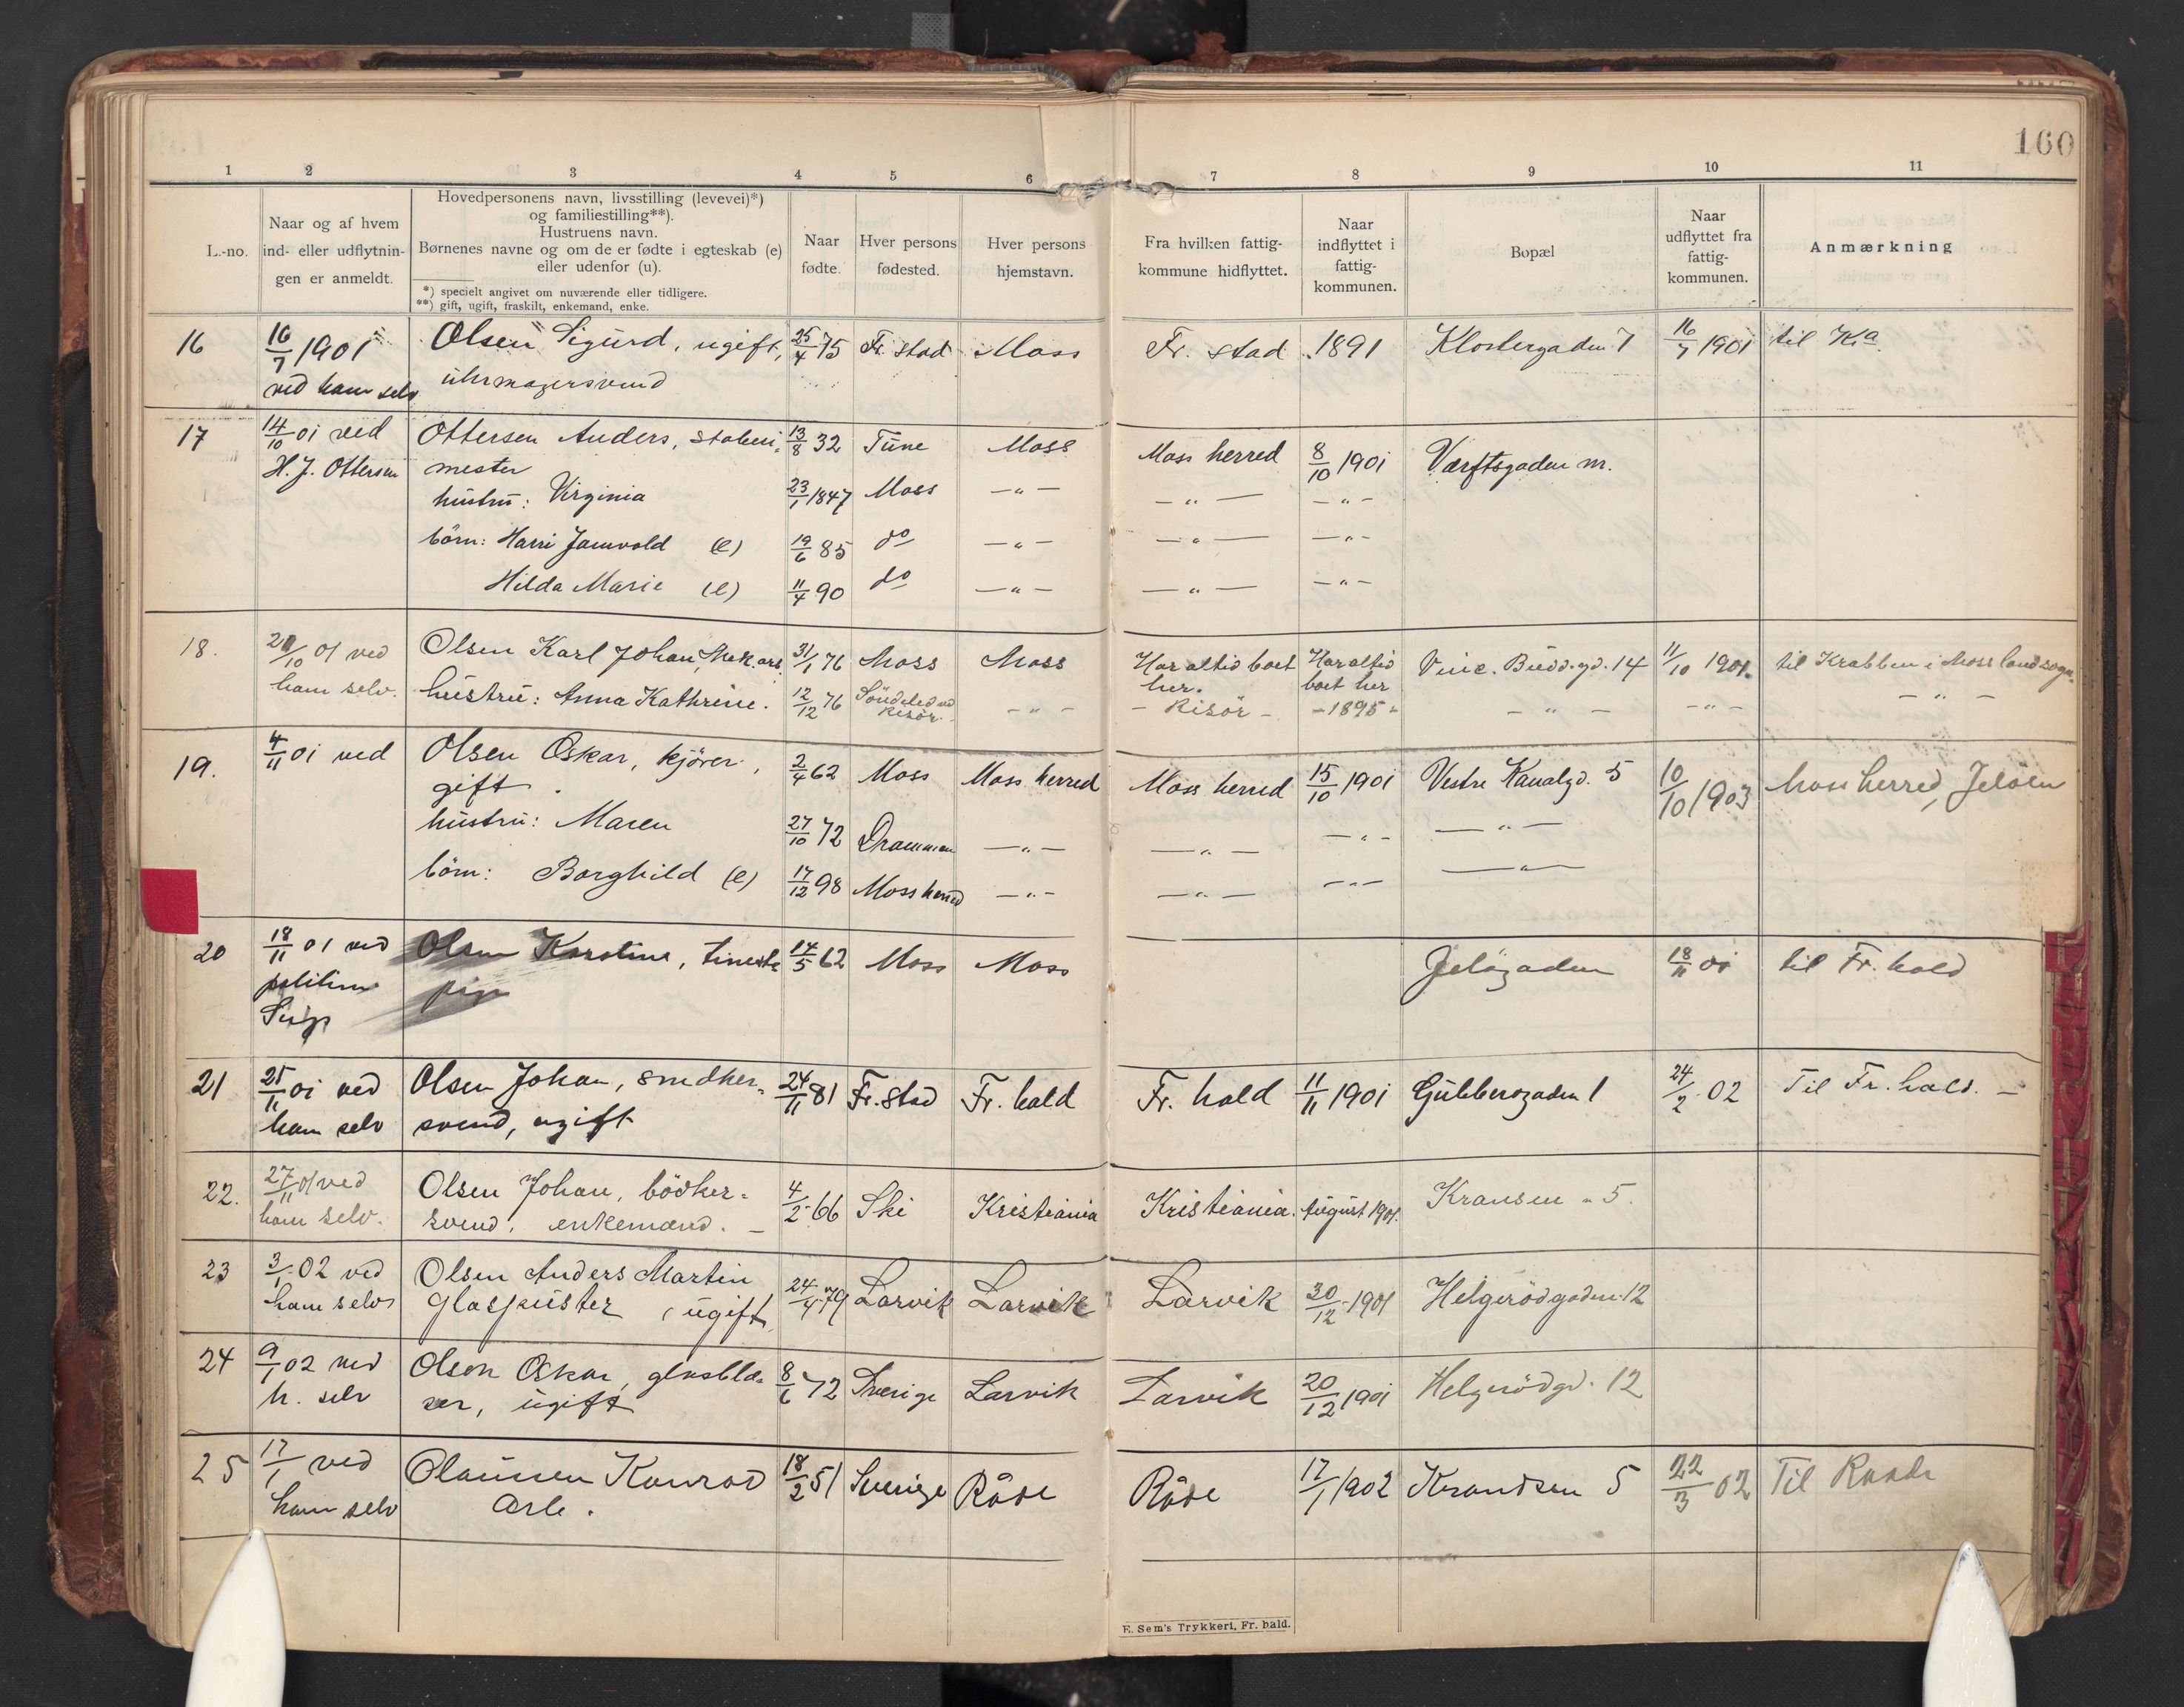 160
1 2 3 4 5 6 7 8 9 10 11
L.-no.
Naar og af hvem
ind- eller udflytnin-
gen er anmeldt.
Hovedpersonens navn, livsstilling (levevei)*)
og familiestilling**).
Hustruens navn.
Børnenes navne og om de er fødte i egteskab (e)
eller udenfor (u).
*) specielt angivet om nuværende eller tidligere.
**) gift, ugift, fraskilt, enkemand, enke.
Naar
fødte.
Hver persons
fødested.
Hver persons
hjemstavn.
Fra hvilken fattig-
kommune hidflyttet.
Naar
indflyttet i
fattig-
kommunen.
Bopæl
Naar
udflyttet fra
fattig-
kommunen.
Anmærkning
16 16/7 1901 Olsen Sigurd, ugift, 25/4 75 Fr. stad Moss Fr. stad 1891 Klostergaden 7 16/7 1901 til Kr.a
ved ham selv uhrmagersvend
17 14/10 01 ved Ottersen Anders, 13/8 32 Tune Moss Moss herred 8/10 1901 Værftsgaden m.
H. J. Ottersen mester
hustru: Virginia 23/1 1847 Moss -"- -"- -"-
börn: Harri (e) 19/6 85 do -"- -"- -"-
Hilda Marie (e) 11/4 90 do -"- -"- -"-
18. /10 01 ved Olsen Karl Johan, 31/1 76 Moss Moss Har altid boet Har altid 14 11/10 1901. til Krabben i Moss landsogn.
ham selv. her. boet her
hustru: Anna Kathrine. 12/12 76 Söndeled ved Risör. -"- - Risör - - 1895 - -"- -"- -"-
19. 4/11 01 ved Olsen Oskar, kjörer, 2/4 62 Moss Moss herred Moss herred 15/10 1901 Vestre Kanalgd. 5 10/10 1903 Moss herred, Jelöen
gift.
hustru: Maren 27/10 72 Drammen -"- -"- -"- -"-
börn: Borghild (e) 17/12 98 Moss herred -"- -"- -"- -"-
20 18/11 01 ved Olsen Karoline, tineste 14/5 62 Moss Moss Jelögaden 18/11 01 til Fr. hald
politim pige
21 25/11 01 ved Olsen Johan, snedker- 24/11 81 Fr. stad Fr. hald Fr. hald 11/11 1901 Gubberogaden 1 24/2 02 Til Fr. hald. -
ham selv svend, ugift
22. 27/11 01 ved Olsen Johan, bödker- 4/2 66 Ski Kristiania Kristiania. August 1901. Kransen - 5.
ham selv. svend, enkemand. -
23 3/1 02 ved Olsen Anders Martin 24/4 79 Larvik Larvik Larvik 30/12 1901 Helgerödgaden 12
ham selv glaspuster, ugift
24 9/1 02 ved Olson Oskar, glasblæ- 8/6 72 Sverige Larvik Larvik 20/12 1901 Helgerödgd. 12
h. selv ser, ugift
25 17/1 ved Olaussen Konrad 18/2 51 Sverige Råde Råde 17/1 1902 Krandsen 5 22/3 02 Til Raade
ham selv Arb.
E. Sem's Trykkeri, Fr. hald.